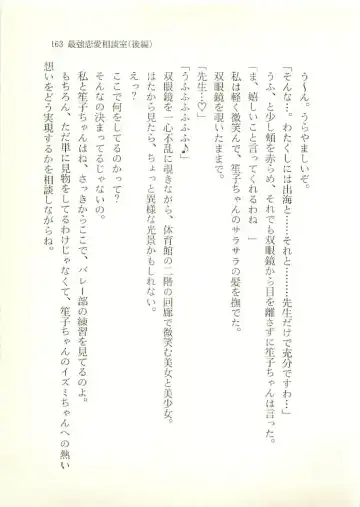 163 最強恋愛相談室(後編)
う〜ん。うらやましいぞ。
「そんな…。わたくしには出海と……それと………先生だけで充分ですわ…」
うふ、と少し頬を赤らめ、それでも双眼鏡から目を離さずに笙子ちゃんは言った。
「ま、嬉しいこと言ってくれるわね」
私は軽く微笑んで、笙子ちゃんのサラサラの髪を撫でた。
双眼鏡を覗いたままで。
「先生…♡」
「うふふふふふふ♪」
双眼鏡を一心不乱に覗きながら、体育館の二階の回廊で微笑む美女と美少女。
はたから見たら、ちょっと異様な光景かもしれない。
えっ?
ここで何をしてるのかって?
決まってるじゃないの。
私と笙子ちゃんはね、さっきからここで、バレー部の練習を見てるのよ。
もちろん、ただ単に見物をしてるわけじゃなくて、笙子ちゃんのイズミちゃんへの熱い
想いをどう実現するかを相談しながらね。